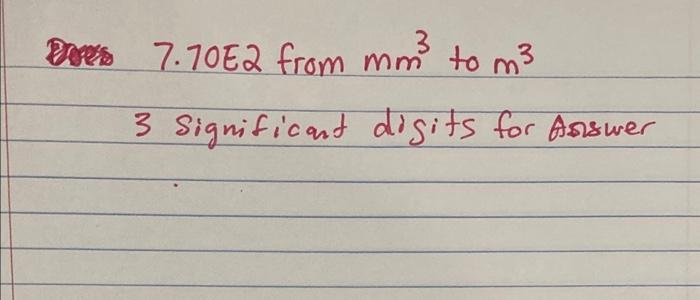 7.70E2 from mm³ to m³
3 Significant digits for Answer